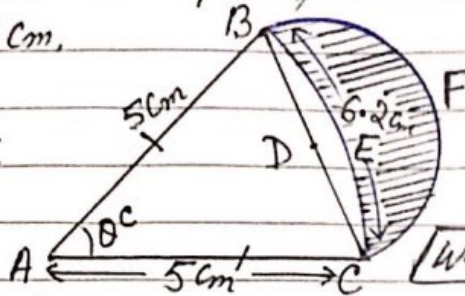 cm,
B
5cm
6.2cm
F
D
E
θᶜ
A
5cm
C